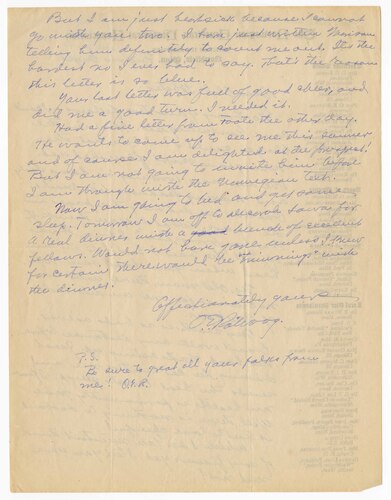 But I am just heartsick because I cannot
go with you two. I have just written Harrison
telling him definitely to count me out. It's the
hardest no I ever had to say. That's the reason
this letter is so blue.
Your last letter was full of good cheer, and
did me a good turn. I needed it.
Had a fine letter from the other day.
He wants to come up to see me this summer
and of course I am delighted at the prospect!
But I am not going to invite him before
I am through with the Norwegian text.
Now I am going to bed and get some
sleep. Tomorrow I am off to for
a real dinner with a bunch of
fellows. Would not have gone unless I knew
for certain there would be "trimmings" with
the dinner.
Affectionately yours
O.
P.S.
Be sure to greet all your folks from
me! O.E.R.